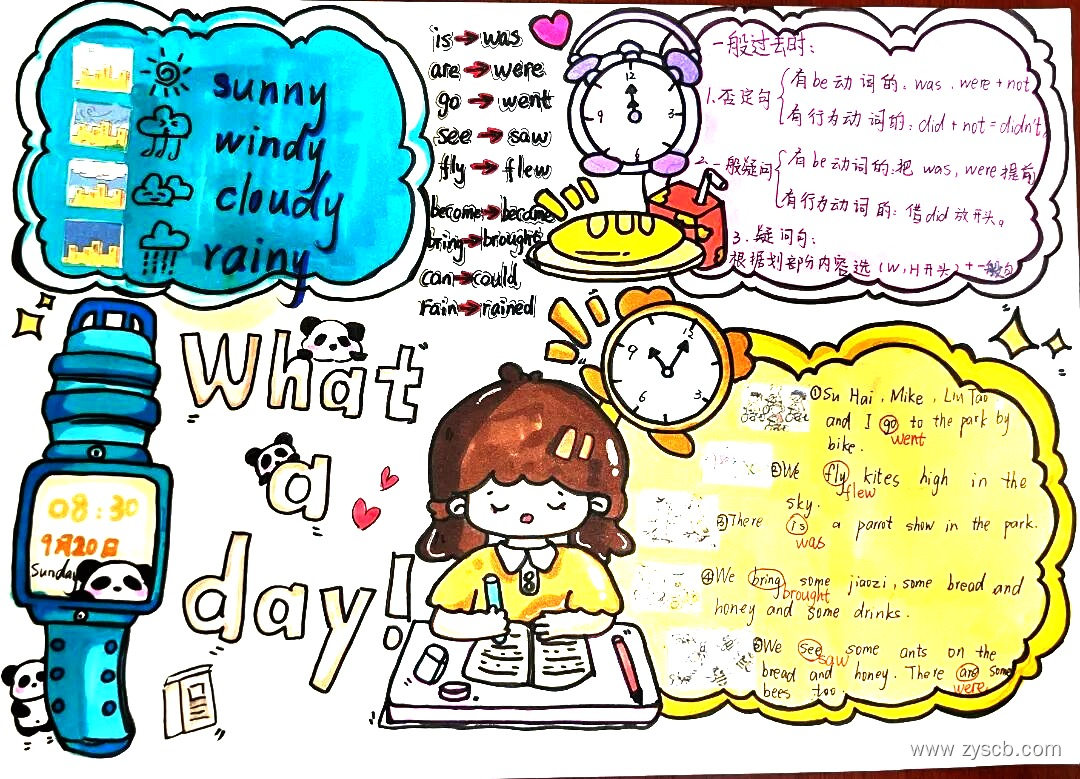 sunny
windy
cloudy
rainy
is→was
are→were
go→went
see→saw
fly→flew
become→became
bring→brought
can→could
rain→rained
12
3
6
9
一般过去时:
1.否定句
有be动词的:was、were+not
有行为动词的:did+not=didn't
2.一般疑问
有be动词的:把was,were提前
有行为动词的:借did放开头。
3.疑问句:
根据划部份内容选(W,H开头)+一般句
08:30
9月20日
Sunday
What
a
day!
12
3
6
9
①Su Hai, Mike, Liu Tao
and I go to the park by
went
bike.
②We fly kites high in the
flew
sky.
③There is a parrot show in the park.
was
④We bring some jiaozi, some bread and
brought
honey and some drinks.
⑤We see some ants on the
saw
bread and honey. There are some
were
bees too.
www.zyscb.com